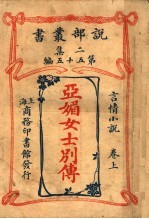 說部叢書
二集
第五十五編
言情小說
卷上
亞媚女士別傳
上海
商務印書館發行